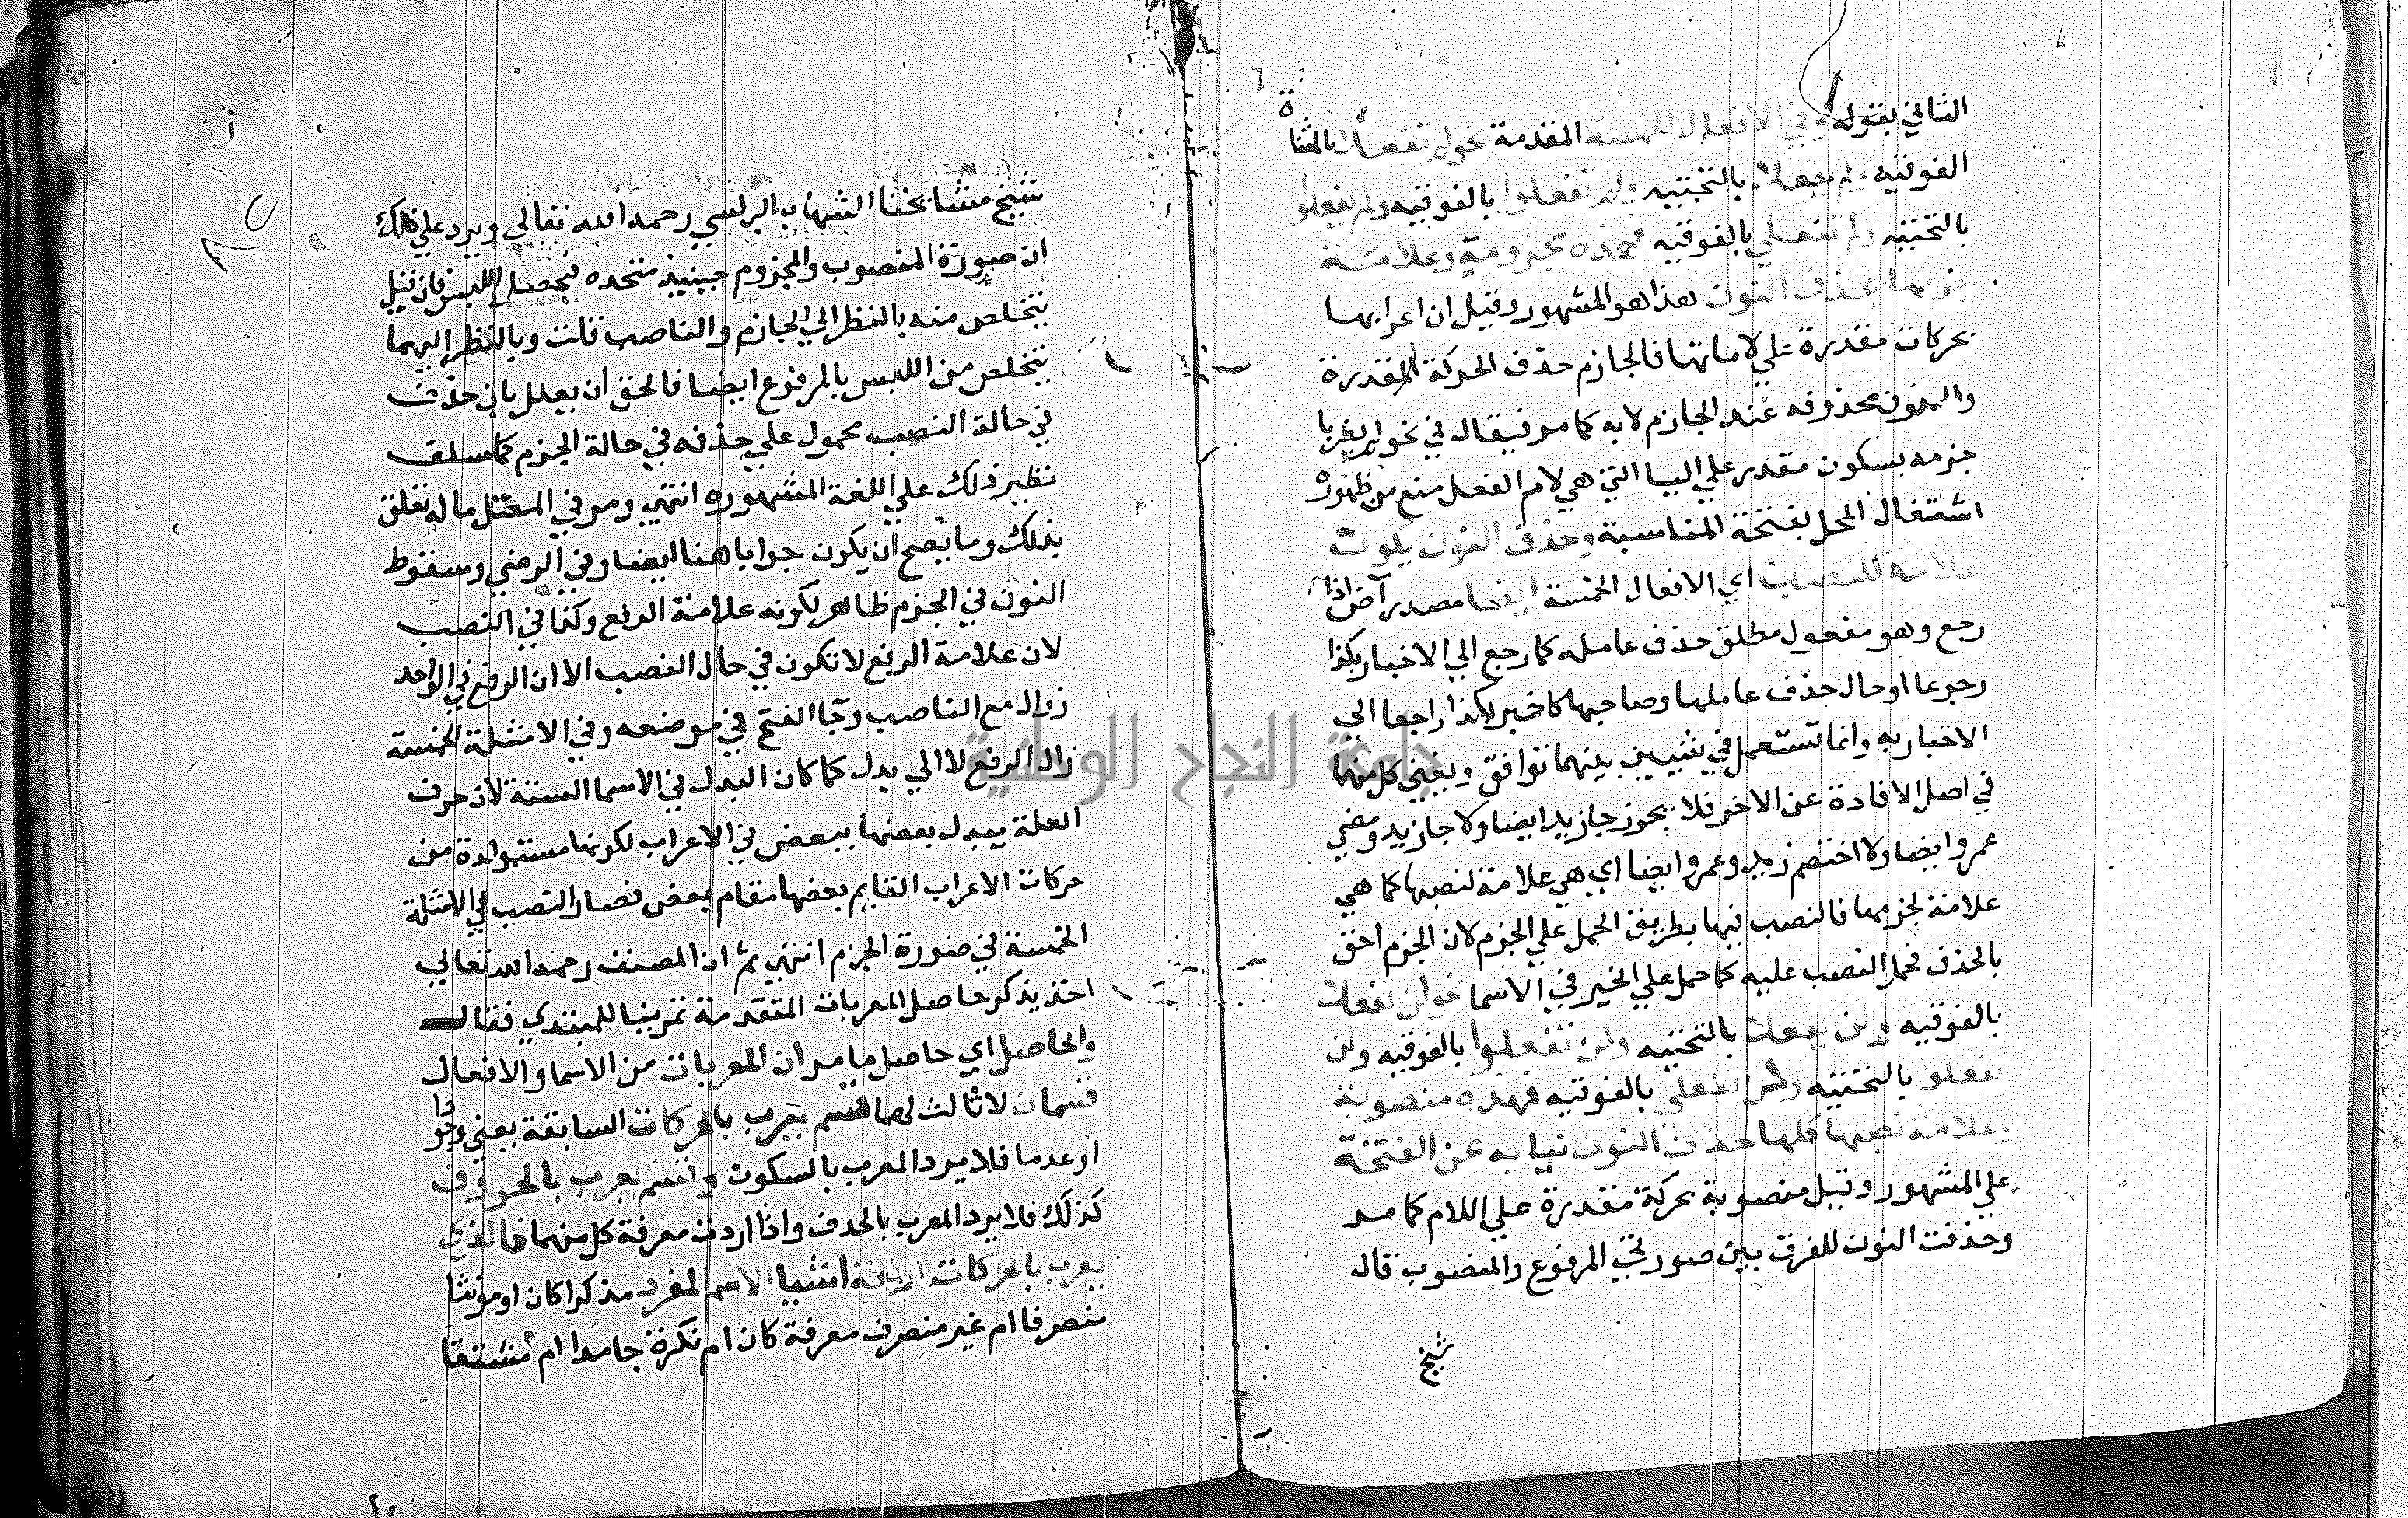 الثاني بقوله وفي الافعال الخمسة المقدمة نحو لم تفعلا بالمثناة
الفوقيه ولم يفعلا بالتحتيه ولم تفعلوا بالفوقيه ولم يفعلوا
بالتحتيه ولم تفعلي بالفوقيه فهذه مجزومة وعلامة
جزمها حذف النون هذا هو المشهور وقيل ان اعرابها
بحركات مقدرة علي لاماتها فالجازم حذف الحركة المقدرة
والنون محذوفه عند الجازم لابه كما مر فيقال في نحو لم يضربا
جزمه بسكون مقدر علي البا التي هي لام الفعل منع من ظهوره
اشتغال المحل بفتحة المناسبة وحذف النون يكون
علامة للنصب اي الافعال الخمسة ايضا مصدر آض اذا
رجع وهو مفعول مطلق حذف عامله كما رجع الي الاخبار بكذا
رجوعا او حال حذف عاملها وصاحبها كاخبر بكذا راجعا الي
الاخبار به وانما تستعمل في شيين بينهما توافق ويغني كل منهما
في اصل الافادة عن الاخر فلا يجوز جا زيد ايضا ولا جا زيد ومضي
عمرو ايضا ولا اختصم زيد وعمرو ايضا اي هي علامة لنصبها كما هي
علامة لجزمها فالنصب فيها بطريق الحمل علي الجزم لان الجزم احق
بالحذف فحمل النصب عليه كما حمل علي الخبر في الاسما نحو لن تفعلا
بالفوقيه ولن يفعلا بالتحتيه ولن تفعلوا بالفوقيه ولن
يفعلوا بالتحتيه ولن تفعلي بالفوقيه فهذه منصوبة
وعلامة نصبها كلها حذف النون نيابه عن الفتحة
علي المشهور وقيل منصوبة بحركة مقدرة علي اللام كما مر
وحذفت النون للفرق بين صورتي المرفوع والمنصوب قال
شيخ
شيخ مشايخنا الشهاب البرلسي رحمه الله تعالي ويرد علي ذلك
ان صورة المنصوب والمجزوم حينيذ متحده فيحصل اللبس فان قيل
يتخلص منه بالنظر الي الجازم والناصب قلت وبالنظر اليهما
يتخلص من اللبس بالمرفوع ايضا فالحق ان يعلل بان حذف
في حالة النصب محمول علي حذفه في حالة الجزم كما سلف
نظير ذلك علي اللغة المشهوره انتهي ومر في المعتل ما له تعلق
بذلك وما يصح ان يكون جوابا هنا ايضا وفي الرضي وسقوط
النون في الجزم ظاهر لكونه علامة الرفع وكذا في النصب
لان علامة الرفع لا تكون في حال النصب الا ان الرفع في الواحد
زوال مع الناصب وجا الفتح في موضعه وفي الامثلة الخمسة
زال الرفع لا الي بدل كما كان البدل في الاسما الستة لان حرف
العلة يبدل بعضها ببعض في الاعراب لكونها مستولدة من
حركات الاعراب القايم بعضها مقام بعض فصار النصب في الامثلة
الخمسة في صورة الجزم انتهي ثم ان المصنف رحمه الله تعالي
اخذ يذكر حاصل المعربات المتقدمة تمرينا للمبتدي فقال
والحاصل اي حاصل ما مر ان المعربات من الاسما والافعال
قسمان لا ثالث لهما قسم يعرب بالحركات السابقة يعني وجودا
او عدما فلا يرد المعرب بالسكون وقسم يعرب بالحروف
كذلك فلا يرد المعرب بالحذف واذا اردت معرفة كل منهما فالذي
يعرب بالحركات اربعة اشيا الاسم المفرد مذكرا كان او مونثا
منصرفا ام غير منصرف معرفة كان ام نكرة جامدا ام مشتقا